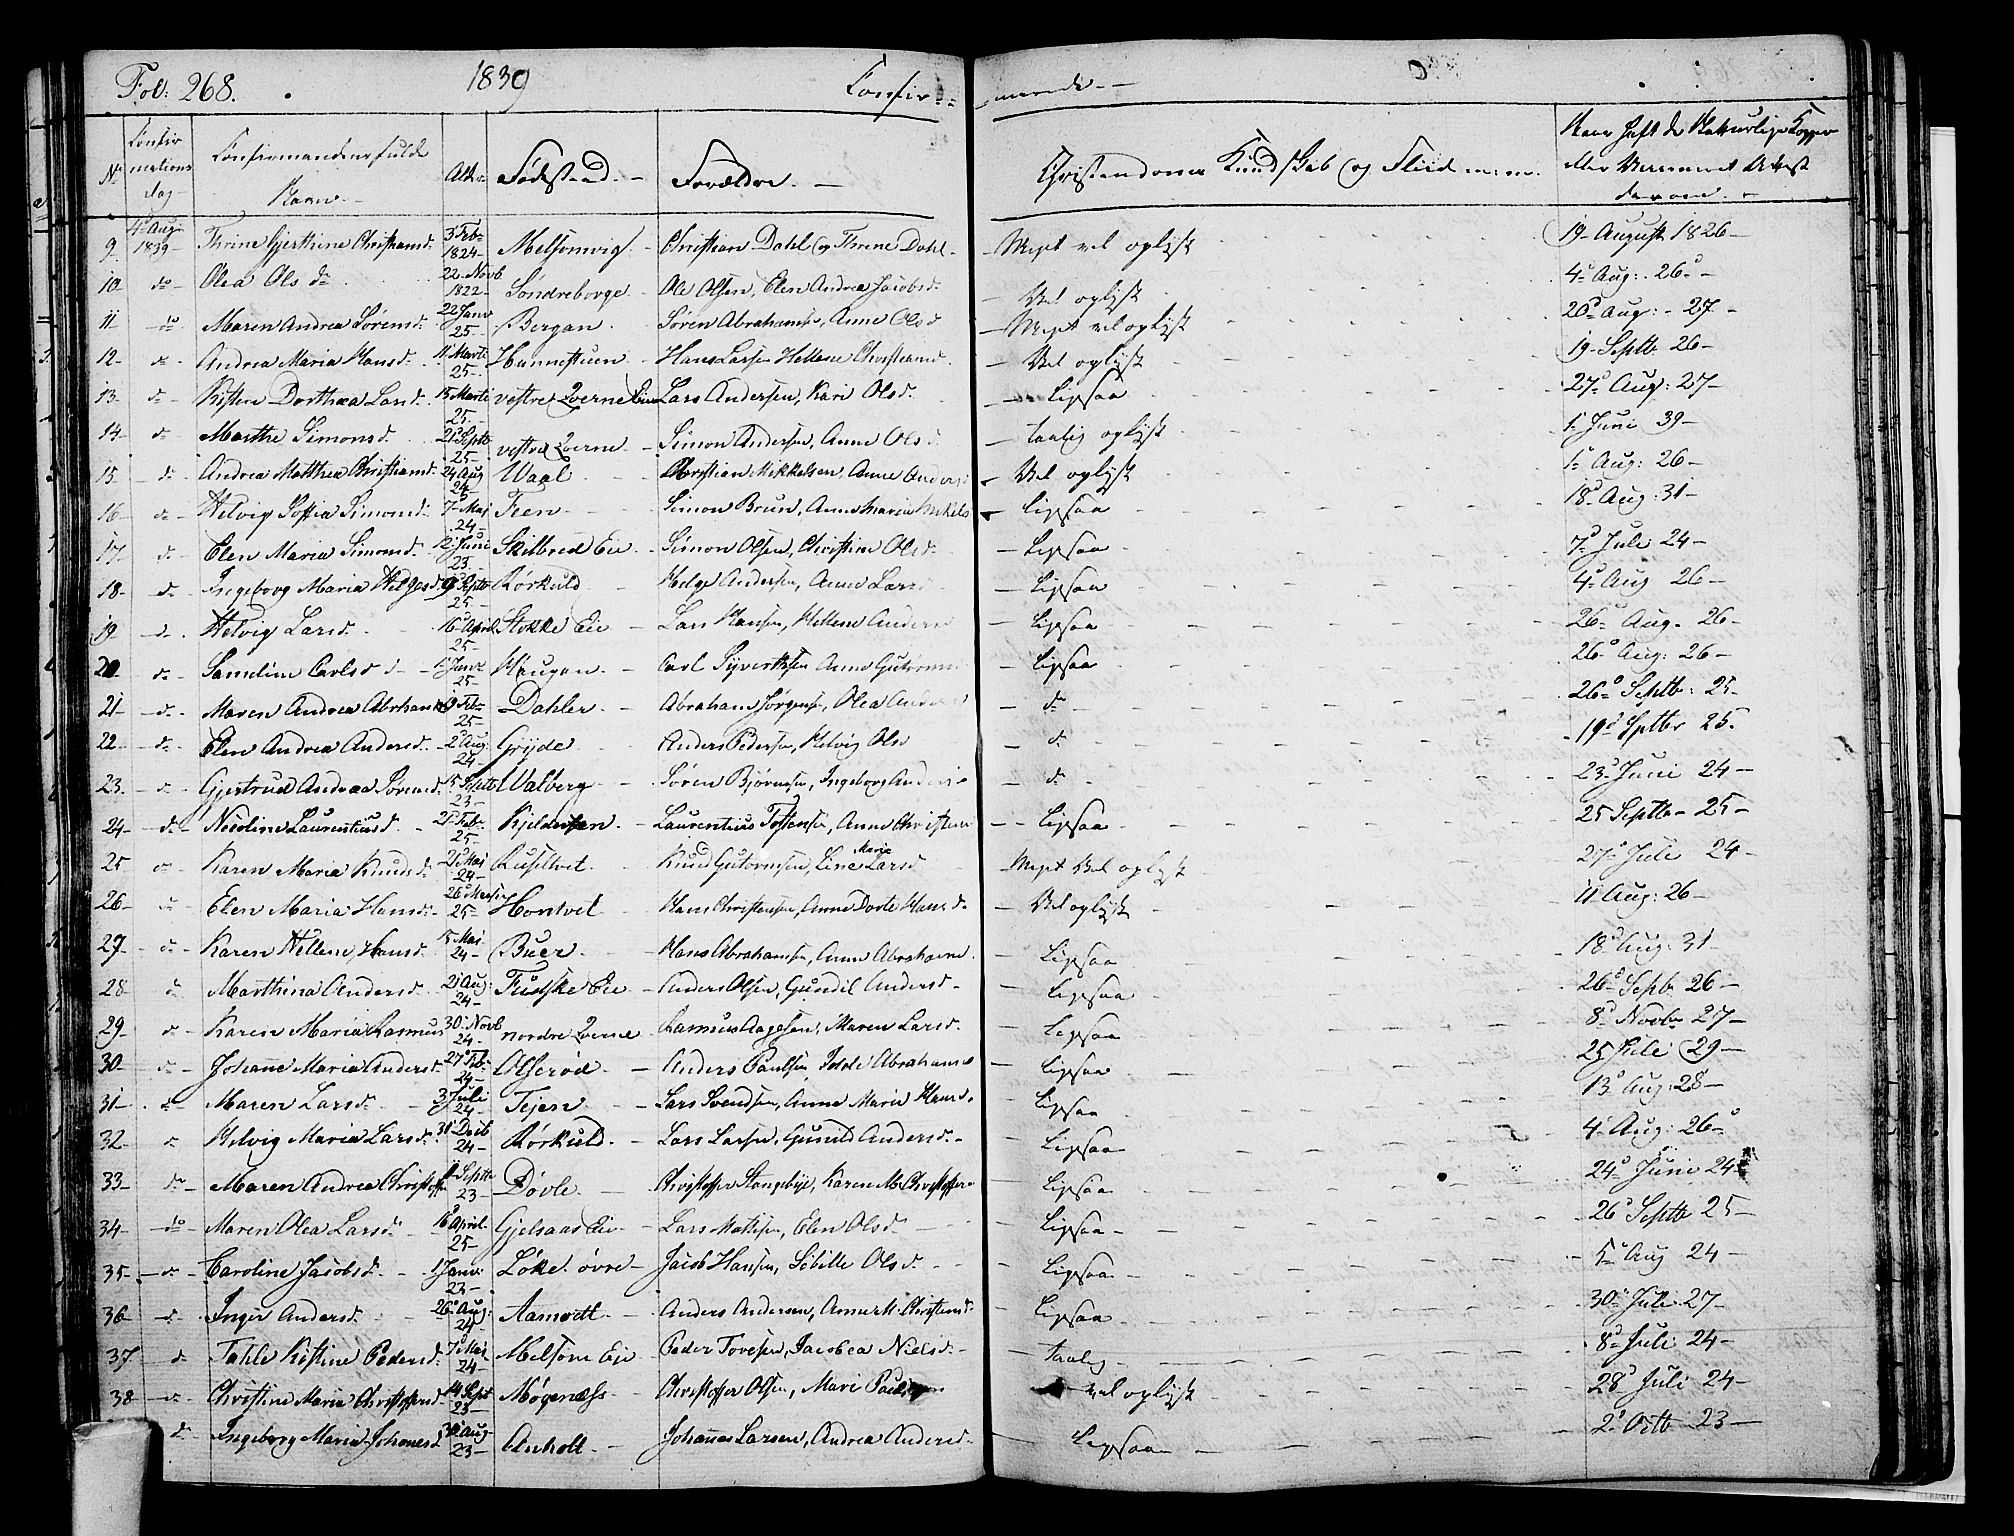 Fol: 268. 1839 Confir= =merede
No Confirmations dag Confirmandenes fulde Navn Alder Fødested Forældre Christendoms Kundskab og Fliid m: m. Naar havt de Naturlige Kopper eller Vaccineret Attest derom
9 4d Aug: 1839 Thrine Gjerthine Christiansd. 3 Feb: 1824 Melsomvig Christian Dahl og Threne Dahl Meget vel oplyst 19 August 1826
10 do Olea Olsdr 22 Novb 1822 Søndreborge Ole Olsen, Elen Andrea Jacobsd. Vel oplyst 4d Aug: 26
11 do Maren Andrea Sørensd. 22 Janv 25 Bergan Søren Abrahamsen, Anne Olsd Meget vel oplyst 26d Aug: 27
12 do Andrea Maria Hansd. 11 Marti 25 Hannestuen Hans Larsen Hellene Christiansd. Vel oplyst 19 Septb 26
13 do Kistine Dorthea Larsd. 15 Marti 25 vestre Qverne Eie Lars Andersen, Kari Olsd. Ligesaa 27d Aug: 27
14 d. Marthe Simonsd. 21 Septb 25 vestre Qverne Simon Andersen, Anne Olsd. taalig oplyst 1 Juni 39
15 d. Andrea Matthea Christiansd. 24 Aug 24 Waal Christian Mikkelsen, Anne Anders. Vel oplyst 1d Aug: 26
16 d. Helvig Soffia Simonsd. 7d Maj 24 Feen Simon Brun, Anne Maria Mikkels Ligesaa 18d Aug: 31
17 d. Elen Maria Simonsd. 12 Juni 23 Skilbred Eie Simon Olsen, Christine Olsd. Ligesaa 7d Juli 24
18 d. Ingeborg Maria Helgesd. 9 Septb 25 Rørkuld Helge Andersen, Anne Lars Ligesaa 4d Aug 26
19 d. Helvig Larsd. 16 April 25 Stokke Eie Lars Hansen, Hellene Anders Ligesaa 26d Aug. 26
20 d. Sameline Carlsd. 1 Janv 25 Haugan Carl Syvertsen Anne Gutorms Ligesaa 26d Aug: 26
21 d. Maren Andrea Abrhams 19 Feb: 25 Dahler Abraham Jørgens, Olea Anders d. 26d Septb: 25
22 d. Elen Andrea Andersd. 2d Aug. 24 Gryde Anders Pedersen, Helvig Ols d. 19d Sptbr 25.
23 d. Gjertrud Andrea Sørensd. 15 Septb 23 Walberg Søren Bjørnsen, Ingeborg Anders d. 23d Juni 24
24 d. Nicoline Laurentiusd. 21 Feb: 25 Kjelderøen Laurentius Tostensen, Anne Christine Ligesaa 25 Septb 25
25 d. Karen Maria Knudsd. 21 Maj 24 Ruseltvet Knud Gutormsen, Line Marie Larsd. Meget Vel oplyst 27d Juli 24
26 d. Elen Maria Hansd. 26d Marti 25 Hontvet Hans Christensen, Anne Dorte Hansd. Vel oplyst 11 Aug: 26
27 d. Karen Hellene Hansd. 15 Maj 24 Buer Hans Abrahamsen, Anne Abrahams. Ligesaa 18d Aug: 31
28 d. Marthina Andersd. 21 Aug: 24 Fudske Eie Anders Olsen, Gundil Andersd. Ligesaa 26d Septb. 26
29 d. Karen Maria Rasmus 30 Novb 24 nordre Qverne Rasmus Aagesen, Maren Larsd. Ligesaa 8d Novbr 27
30 d. Johanne Maria Andersd. 27 Feb: 24 Olserød Anders Paulsen, Abrahams Ligesaa 25 Juli 29
31 d. Maren Larsd. 3 Juli 24 Fejen Lars Svendsen, Anne Marie Hansd. Ligesaa 13d Aug: 28
32 d. Helvig Maria Larsd. 31 Decb 24 Rørkuld Lars Larsen, Gunild Andersd. Ligesaa 4d Aug: 26
33 d. Maren Andrea Christoff 11 Septb 23 Døvle Christoffer Stangebye, Karen M. Christoffers Ligesaa 24d Juni 24
34 do Maren Olea Larsd. 16 April 25 Gjelsaas Eie Lars Mathisen, Elen Olsd. Ligesaa 26d Septb 25
35 d. Caroline Jacobsd. 1 Janv: 23 Løke øvre Jacob Hansen, Sibille Olsd. Ligesaa 5d Aug 24
36 d. Inger Andersd. 26 Aug: 24 Aamodt Anders Andersen, Anne M. Christensd. Ligesaa 30d Juli 27
37 d. Tahle Kistine Pedersd. 7d Maj 24 Melsom Eie Peder Tovesen, Jacobea Nielsd. Taalig 8d Juli 24
38 d. Christine Maria Christoffersd. 14 Sept 23 Møgenæss Christoffer Olsen, Mari Pauls vel oplyst 28d Juli 24
d. Ingeborg Maria Johanesd. 30 Aug 23 Anholt Johannes Larsen, Andrea Andersd. Ligesaa 2d Octb 23